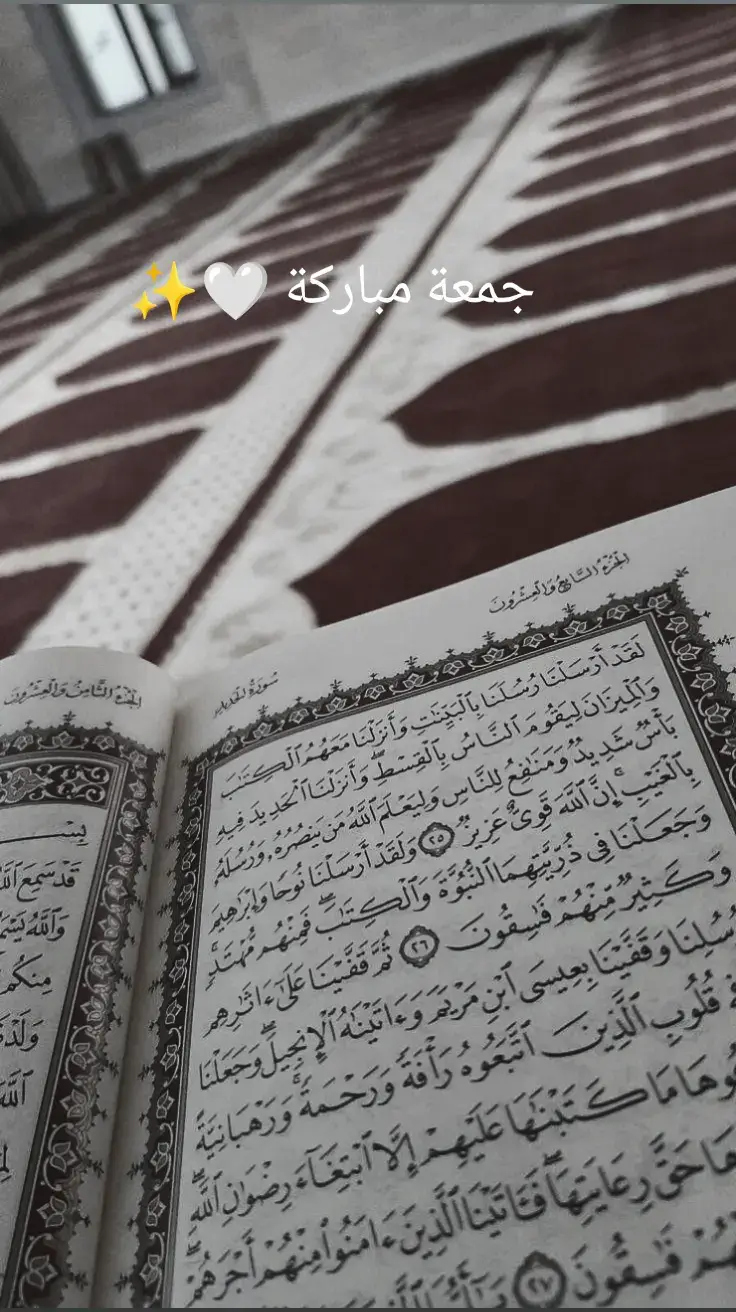 جمعة مباركة 🤍✨
الجزء السابع والعشرون
سورة الحديد
لَقَدْ أَرْسَلْنَا رُسُلَنَا بِالْبَيِّنَٰتِ وَأَنزَلْنَا مَعَهُمُ الْكِتَٰبَ
وَالْمِيزَانَ لِيَقُومَ النَّاسُ بِالْقِسْطِ ۖ وَأَنزَلْنَا الْحَدِيدَ فِيهِ
بَأْسٌ شَدِيدٌ وَمَنَٰفِعُ لِلنَّاسِ وَلِيَعْلَمَ اللَّهُ مَن يَنصُرُهُۥ وَرُسُلَهُۥ
بِالْغَيْبِ ۚ إِنَّ اللَّهَ قَوِىٌّ عَزِيزٌ ٢٥ وَلَقَدْ أَرْسَلْنَا نُوحًا وَإِبْرَٰهِيمَ
وَجَعَلْنَا فِى ذُرِّيَّتِهِمَا النُّبُوَّةَ وَالْكِتَٰبَ ۖ فَمِنْهُم مُّهْتَدٍ ۖ
وَكَثِيرٌ مِّنْهُمْ فَٰسِقُونَ ٢٦ ثُمَّ قَفَّيْنَا عَلَىٰٓ ءَاثَٰرِهِم
رُسُلِنَا وَقَفَّيْنَا بِعِيسَى ابْنِ مَرْيَمَ وَءَاتَيْنَٰهُ الْإِنجِيلَ ۖ وَجَعَلْنَا
قُلُوبِ الَّذِينَ اتَّبَعُوهُ رَأْفَةً وَرَحْمَةً ۚ وَرَهْبَانِيَّةً
مَا كَتَبْنَٰهَا عَلَيْهِمْ إِلَّا ابْتِغَآءَ رِضْوَٰنِ اللَّهِ
حَقَّ رِعَايَتِهَا ۖ فَـَٔاتَيْنَا الَّذِينَ ءَامَنُوا مِنْهُمْ أَجْرَهُمْ ۖ
فَٰسِقُونَ ٢٧
الجزء الثامن والعشرون
قَدْ سَمِعَ اللَّهُ
وَاللَّهُ
مِنكُم